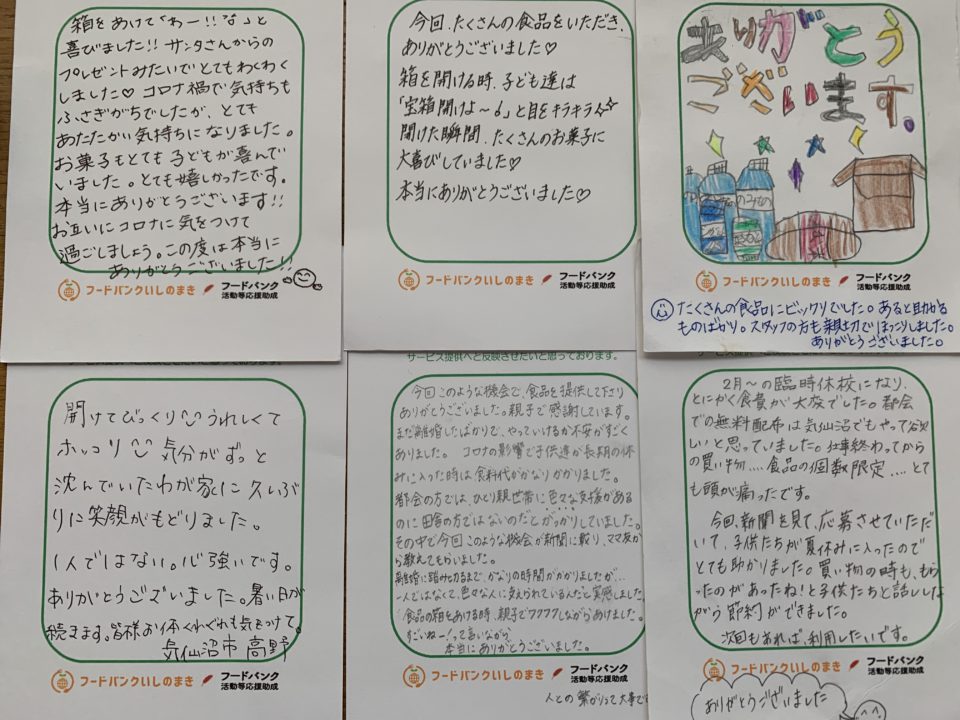 箱をあけて「わー!!」と
喜びました!! サンタさんからの
プレゼントみたいでとてもわくわく
しました♡ コロナ禍で気持ちも
ふさぎがちでしたが、とても
あたたかい気持ちになりました。
お菓子もとても子どもが喜んで
いました。とても嬉しかったです。
本当にありがとうございます!!
お互いにコロナに気をつけて
過ごしましょう。この度は本当に
ありがとうございました!!
フードバンクいしのまき
フードバンク
活動等応援助成
今回、たくさんの食品をいただき、
ありがとうございました♡
箱を開ける時、子ども達は
「宝箱開けよ〜」と目をキラキラ
開けた瞬間、たくさんのお菓子に
大喜びしていました♡
本当にありがとうございました♡
フードバンクいしのまき
フードバンク
活動等応援助成
ありがとう
ございます。
のみもの
フードバンクいしのまき
フードバンク
活動等応援助成
たくさんの食品にビックリでした。あると助かる
ものばかり。スタッフの方も親切でほっこりしました。
ありがとうございました。
開けてびっくり うれしくて
ホッコリ 気分がずっと
沈んでいたわが家に久しぶ
りに笑顔がもどりました。
1人ではない。心強いです。
ありがとうございました。暑い日が
続きます。皆様お体くれぐれも気をつけて。
気仙沼市 高野
フードバンクいしのまき
フードバンク
活動等応援助成
サービス提供へと反映させたいと思っております。
今回このような機会で、食品を提供して下さり
ありがとうございました。親子で感謝しています。
まだ離婚したばかりで、やっていけるか不安がすごく
ありました。 コロナの影響で子供達が長期の休
みに入った時は食料代がかなりかかりました。
都会の方では、ひとり親世帯に色々な支援がある
のに田舎の方ではないのだとがっかりしていました。
その中で今回このような機会が新聞に載り、ママ友か
ら教えてもらいました。
離婚に踏み切るまで、かなりの時間がかかりましたが…
一人ではなくて、色々な人に支えられているんだと実感しました。
食品の箱をあける時、親子でワクワクしながらあけました。
すごいねー!って言いながら
本当にありがとうございました。
フードバンクいしのまき
フードバンク
活動等応援助成
人との繋がりって大事で
2月〜の臨時休校になり、
とにかく食費が大変でした。都会
での無料配布は気仙沼でもやって欲
しいと思っていました。仕事終わってから
の買い物‥‥食品の個数限定‥‥とて
も頭が痛ったです。
今回、新聞を見て、応募させていただ
いて、子供たちが夏休みに入ったので
とても助かりました。買い物の時も、もらっ
たのがあったね!と子供たちと話しし
ながら節約ができました。
次回もあれば、利用したいです。
フードバンクいしのまき
フードバンク
活動等応援助成
ありがとうございました